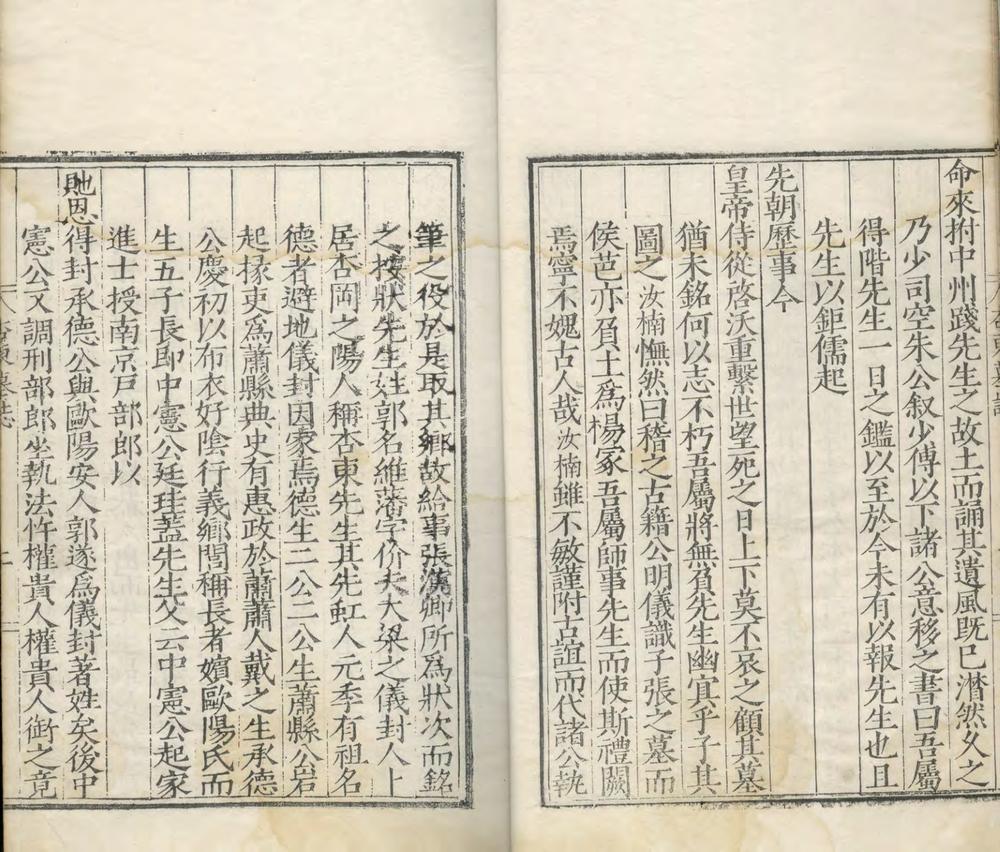 命來拊中州踐先生之故土而誦其遺風既巳潸然久之
乃少司空朱公叙少傅以下諸公意移之書曰吾屬
得階先生一日之鑑以至於今未有以報先生也且
先生以鉅儒起
先朝歷事今
皇帝侍從啓沃重繫世望死之日上下莫不哀之顧其墓
猶未銘何以志不朽吾屬將無負先生幽宜乎子其
圖之汝楠憮然曰稽之古籍公明儀識子張之墓而
侯芭亦負土爲楊冢吾屬師事先生而使斯禮闕
焉寧不媿古人哉汝楠雖不敏謹附古誼而代諸公執
筆之役於是取其鄉故給事張漢卿所爲狀次而銘
之按狀先生姓郭名維藩字价夫大梁之儀封人上
居杏岡之陽人稱杏東先生其先虹人元季有祖名
德者避地儀封因家焉德生二公二公生蕭縣公岩
起掾吏爲蕭縣典史有惠政於蕭蕭人戴之生承德
公慶初以布衣好陰行義鄉閭稱長者嬪歐陽氏而
生五子長即中憲公廷珪蓋先生父云中憲公起家
進士授南京戸部郎以
貤恩得封承德公與歐陽安人郭遂爲儀封著姓矣後中
憲公又調刑部郎坐執法忤權貴人權貴人銜之竟